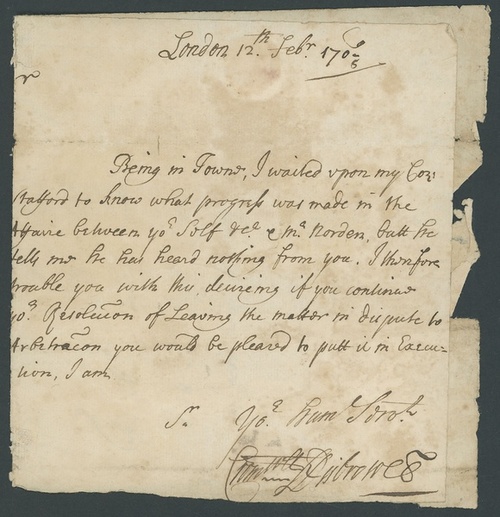 London 12th Febr. 170 5/6
r
Being in Towne, I waited upon my Coz:
Stafford to know what progress was made in the
Affaire between yor Self &c: & Mr. Norden, butt he
tells me he has heard nothing from you. I therefore
trouble you with this desireing if you continue
yor. Resolucon of Leaving the matter in dispute to
Arbitracon you would be pleased to putt it in Execu-
tion, I am
Sr. yor. humb. Servt.
Disbrowe